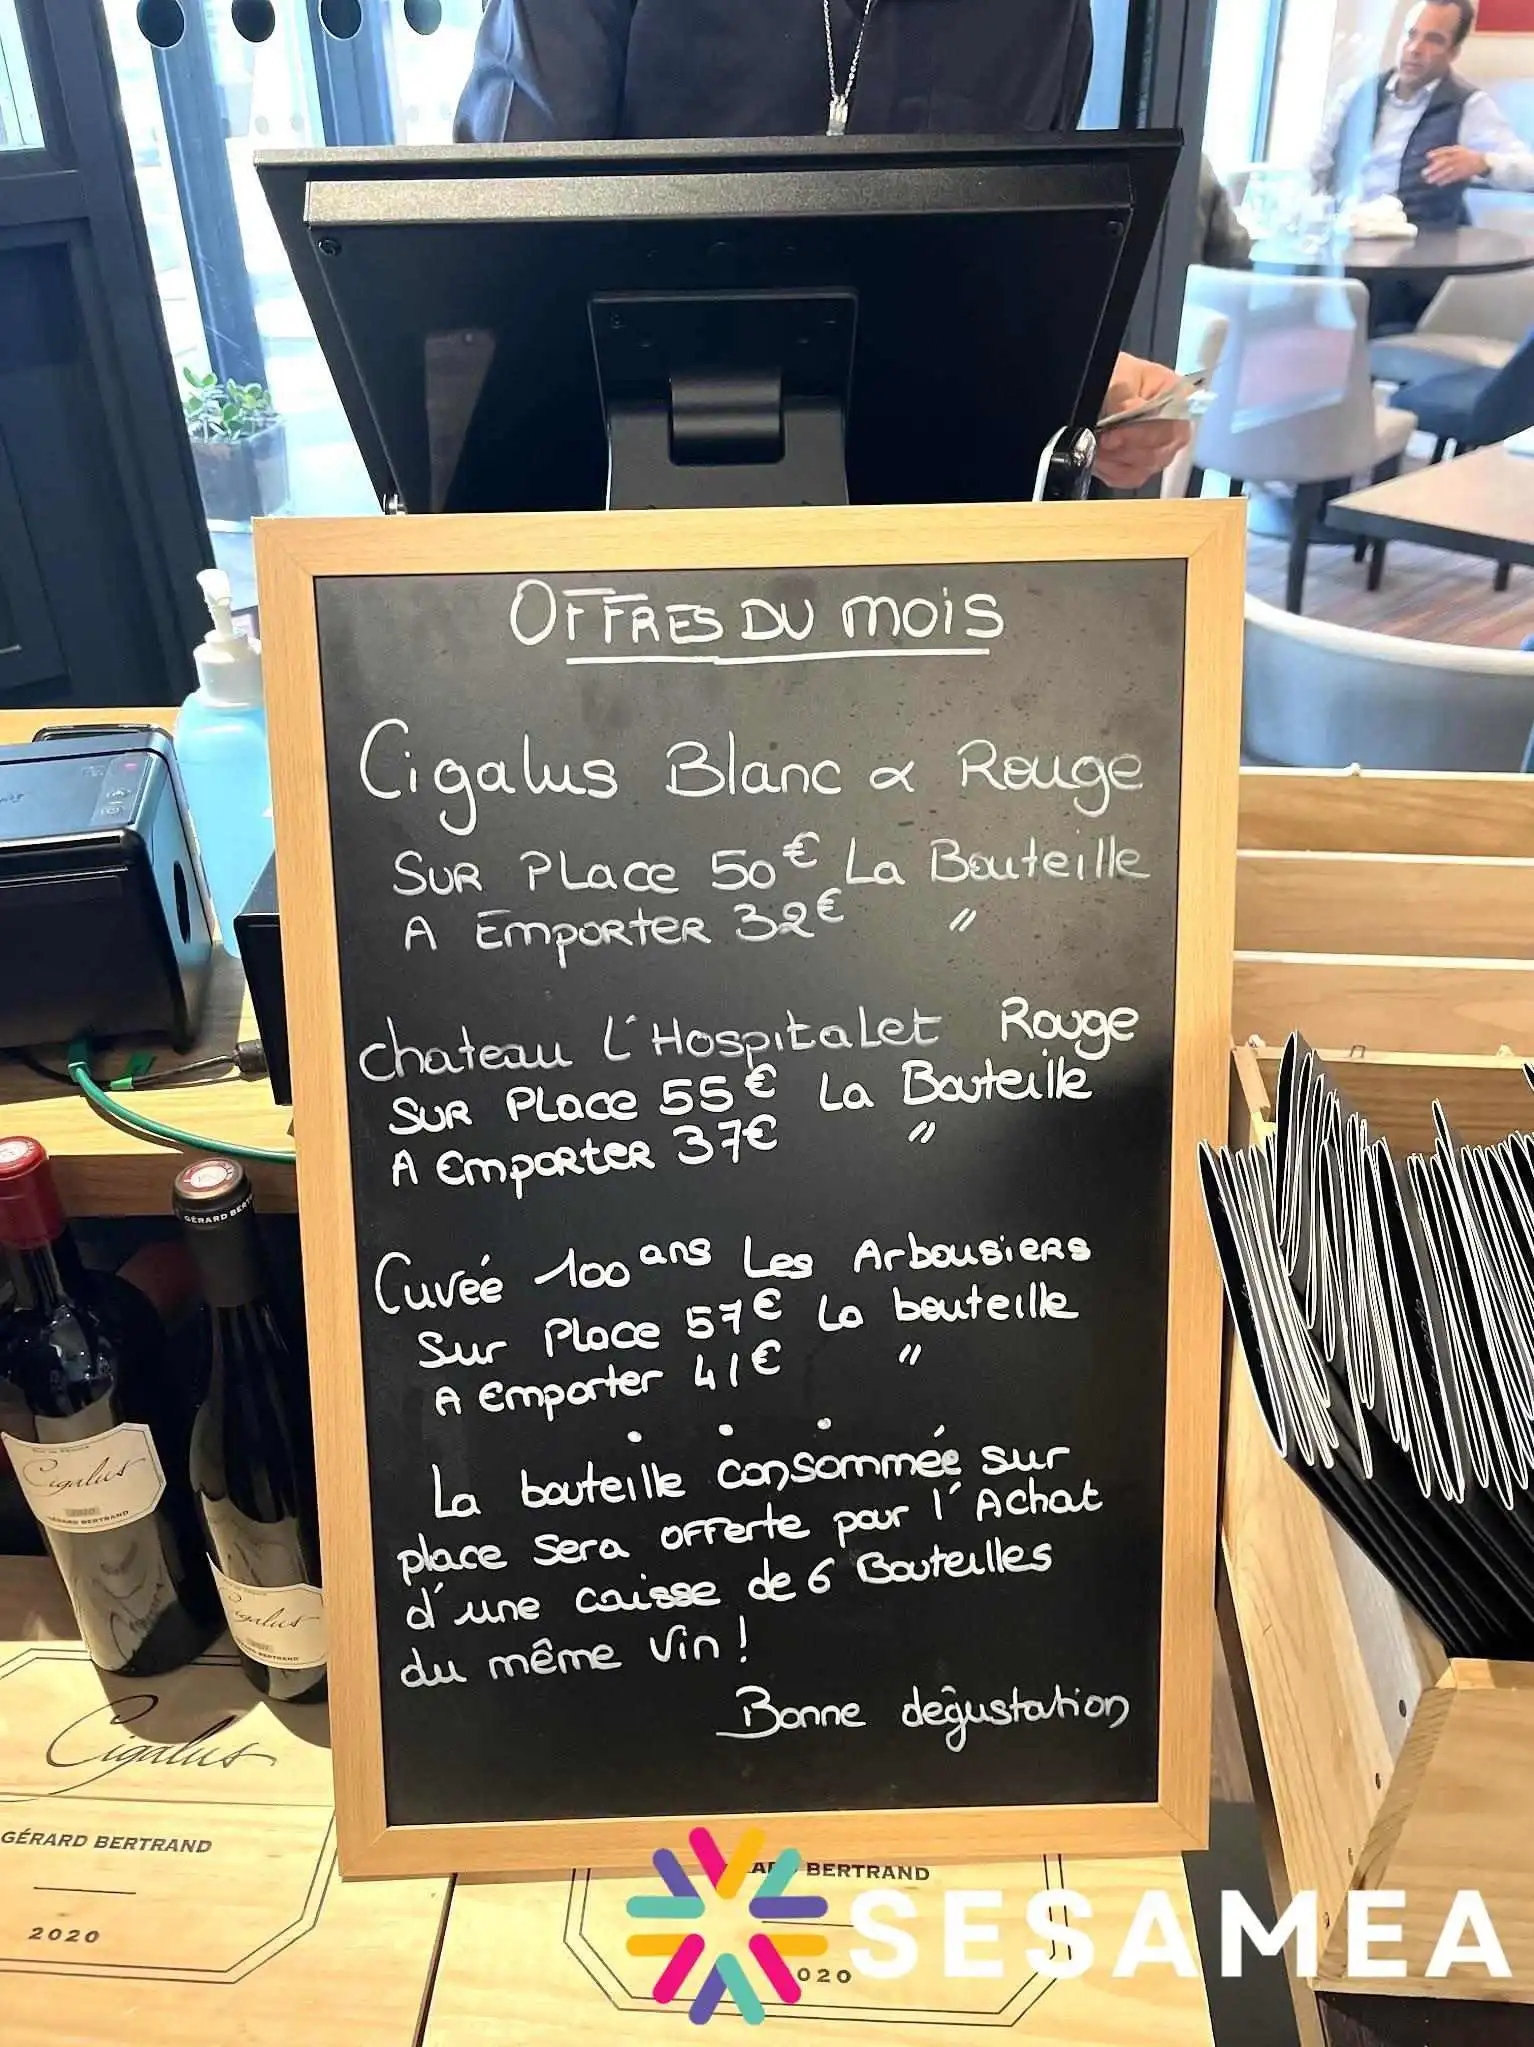 OFFRES DU MOIS
Cigalus Blanc & Rouge
SUR PLace 50€ La Bouteille
A EmporteR 32€ "
chateau l'Hospitalet Rouge
SUR PLace 55€ La Bouteille
A EmporteR 37€ "
Cuvéé 100 ans Les ArbousieRs
Sur Place 57€ La bouteille
A Emporter 41€ "
La bouteille consommée sur
place sera offerte pour l'Achat
d'une caisse de 6 Bouteilles
du même Vin !
Bonne dégustation
GÉRARD BER
Cigalus
2020
GÉRARD BERTRAND
Cigalus
GÉRARD BERTRAND
2020
BERTRAND
020
SESAMEA